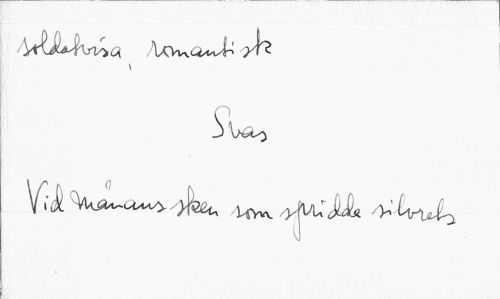 soldatvisa, romantisk
Svas
Vid månans sken som spridde silvrets